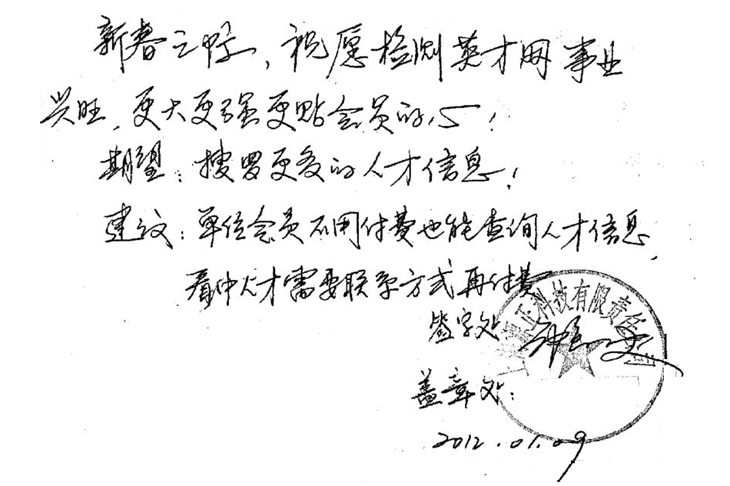 新春之际，祝愿检测英才网事业
兴旺，更大更强更贴会员的心！
期望：搜罗更多的人才信息！
建议：单位会员不用付费也能查询人才信息，
看中人才需要联系方式再付费
签字处
盖章处：
2012.01.09
科技有限责任公司